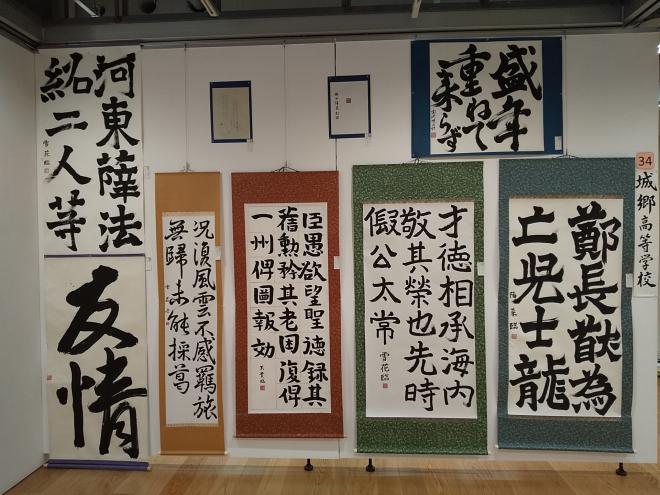 34
城郷高等学校
盛年
重ねて
来らず
鄭長猷為
亡兒士龍
才徳相承海内
敬其榮也先時
假公太常
雪花臨
臣愚欲望聖徳録其
舊勲矜其老困復俾
一州俾圖報効
況復風雲不感羈旅
無歸未能採葛
河東薩法
紹二人等
雪花臨
友情